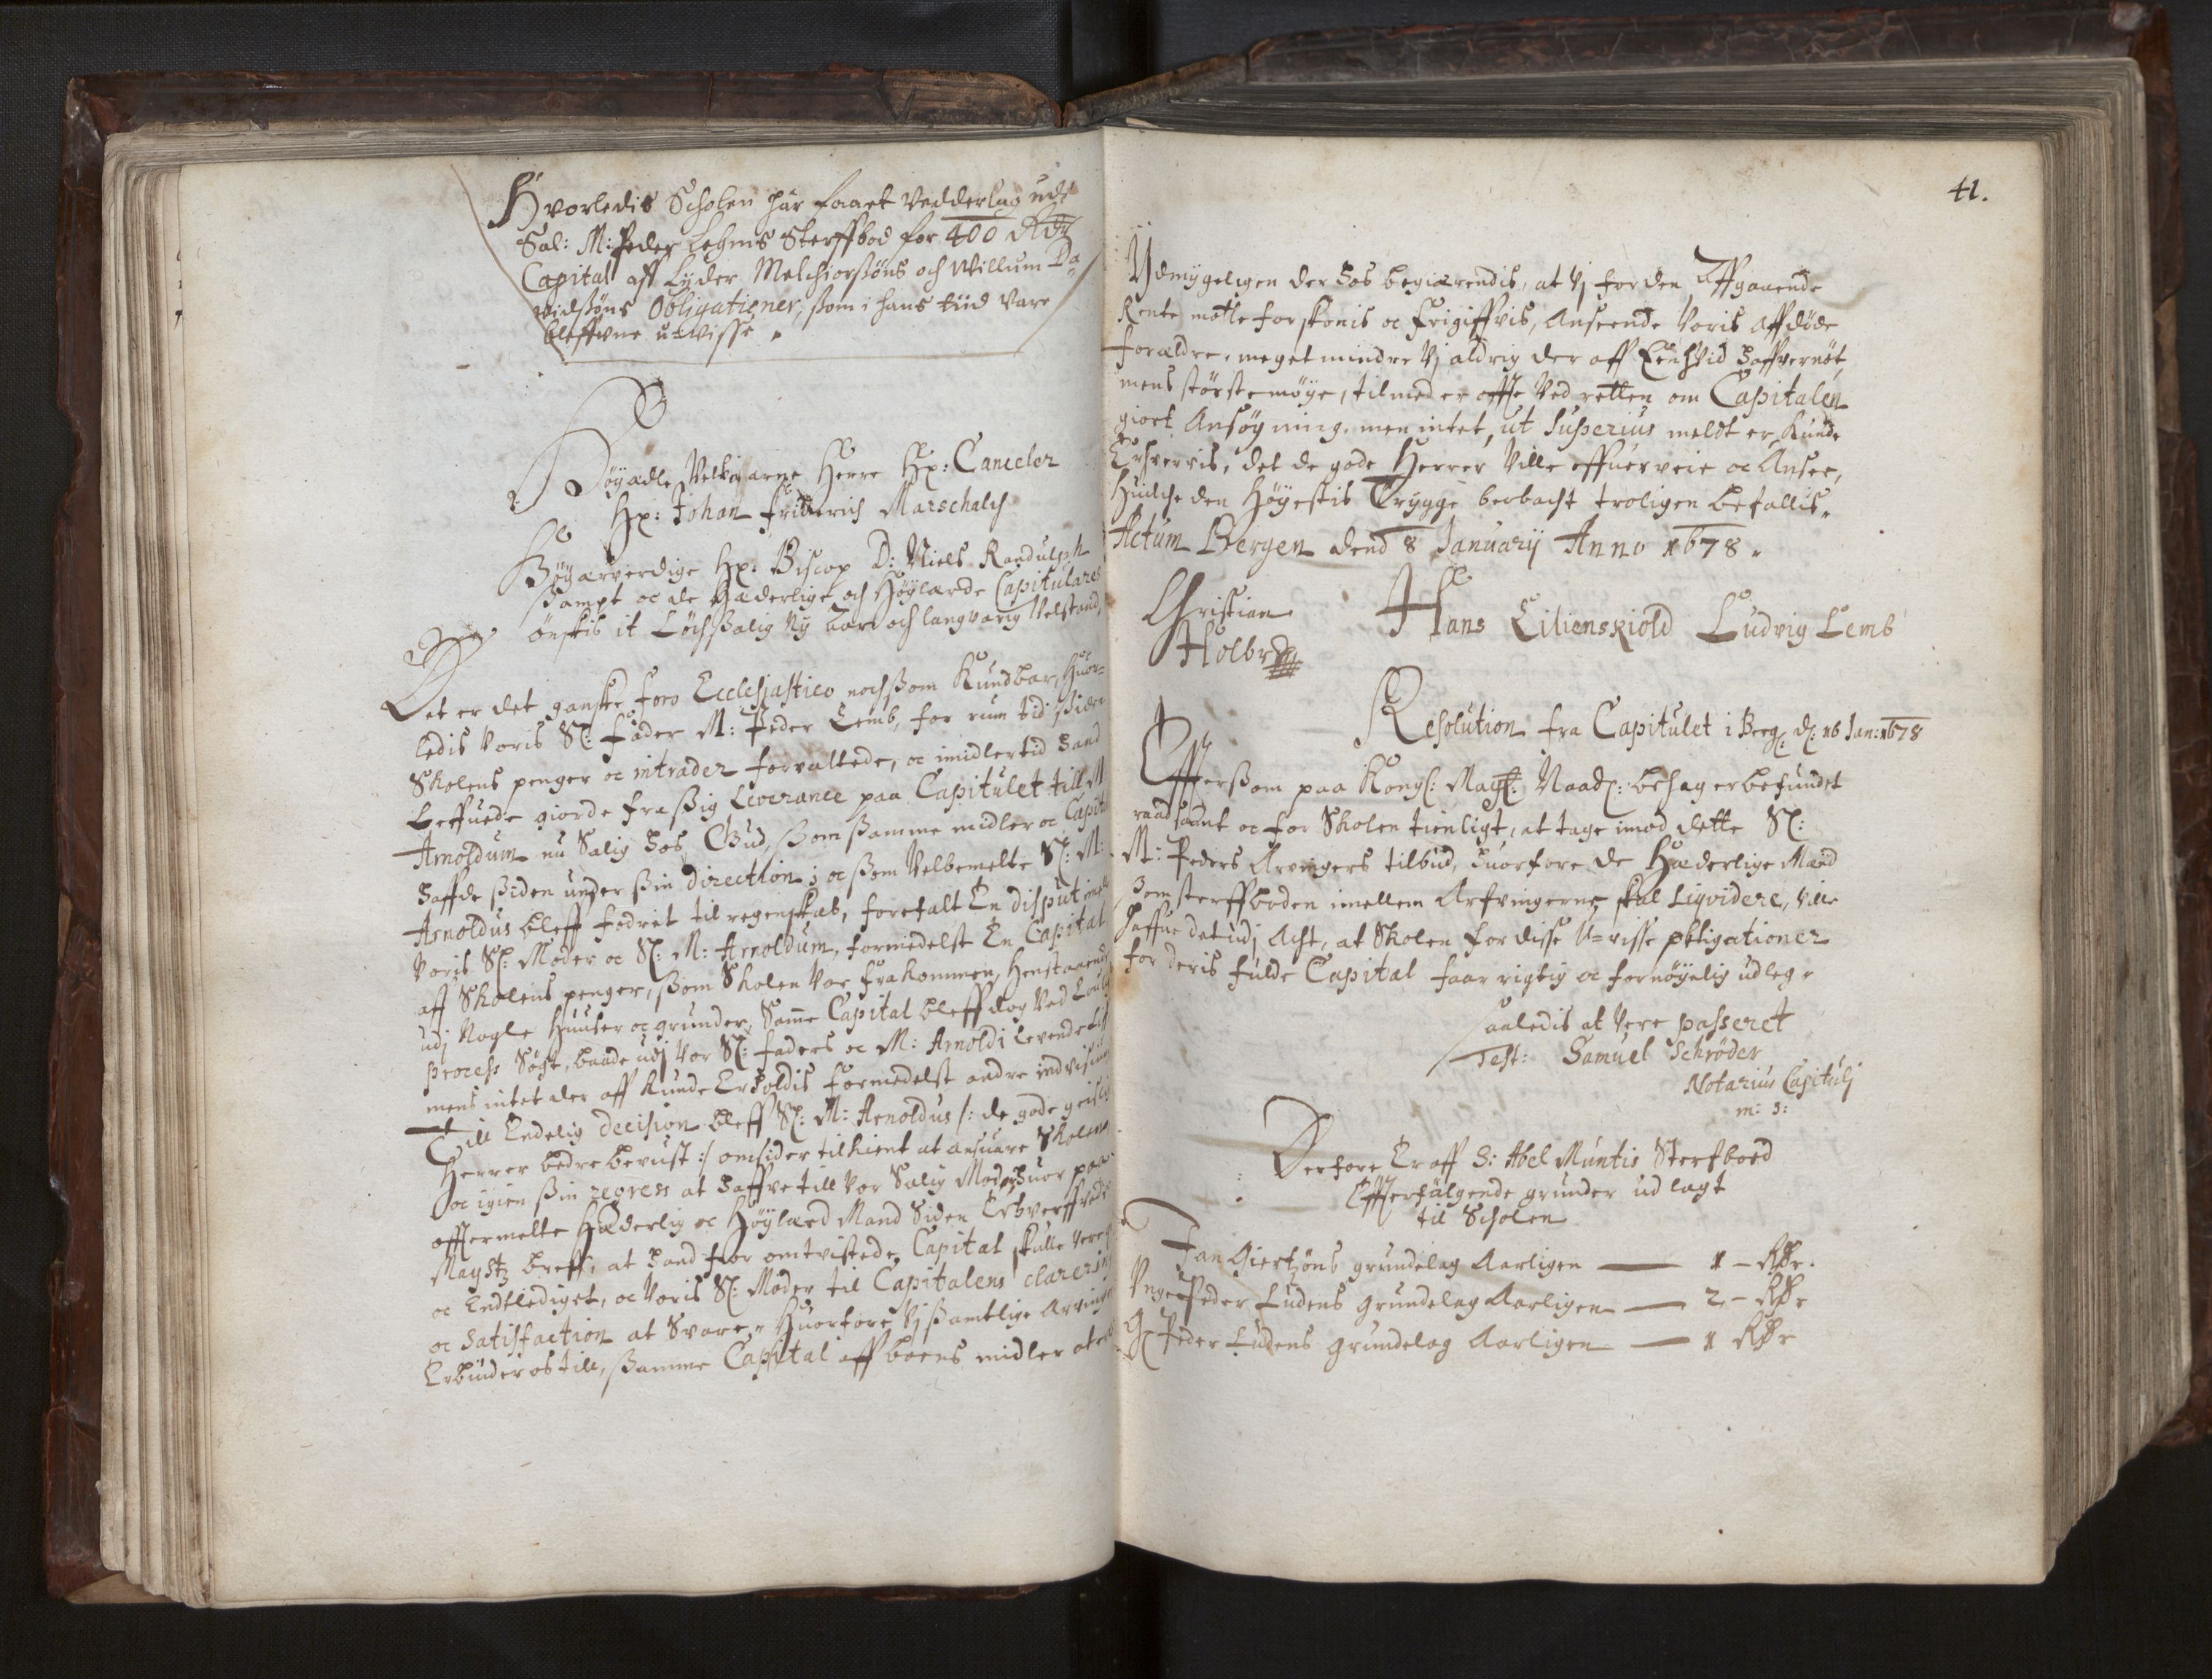 Hvorledis Scholen har faaet Vedderlag udi
Sal: M: Peder Lehms Sterffbod for 400 Rdr
Capital aff Lyder Melchiorßøns och Willum Da-
vidßøns Obligationer, ßom i hans tiid Vare
bleffvne u-visse.
Høyædle Velbaarne Herre Hr: Canceler
Hr: Johan Friderich Marschalch
Høyærverdige Hr: Biscop D: Niels Randulph
ßampt oc de Hæderlige och Høylærde Capitulares
ønskis it Lychßalig Ny Aar och langvarig Velstand,
Det er det ganske foro Ecclesiastico nochßom Kundbar, Huor-
ledis Voris Sl: Fader M: Peder Lemb, for rum tid ßiden
Skolens penger oc intrader forvaltede, oc imidlertid hand
Leffuede giorde fra ßig Leverance paa Capitulet till M
Arnoldum nu Salig hos Gud, ßom ßamme midler oc Capital
haffde ßiden under ßin direction; oc ßom Velbemelte Sl: M:
Arnoldus bleff fodret til regenskab, forefalt En disput imell
Voris Sl: Moder oc Sl: M: Arnoldum, formedelst En Capital
aff Skolens penger, ßom Skolen Var frakommen, Henstaaende
udj Nogle Huuser oc grunder, Samme Capital bleff dog Ved Loulig
process Søgt, baade udj Vor Sl: Faders oc M: Arnoldi Levende tid
mens intet der aff Kunde Erholdis formedelst andre indvisiung
Till Endelig decision bleff Sl: M: Arnoldus /: de gode geistlig
Herrer bedre bevust :/ omsider tilkient at ansuare Skolen
oc igien ßin regress at haffve till Vor Salig Moder huor paa
offtermelte Hæderlig oc Høylærd Mand Siden Erhverffvede
Maystz breff, at hand for omtvistede Capital skulle Vere
oc Endtlediget, oc Voris Sl: Moder til Capitalens clarering
oc Satisfaction at Svare, Huorfore Vj ßamtlige Arvinger
Erbiuder os till, ßamme Capital aff boens midler at
41.
Ydmygeligen der hos begiærendis, at Vj for den Affgaaende
Rente motte forskonis oc frigiffvis, Anseende Voris affdøde
forældre, meget mindre Vj aldrig der aff Een hvid haffver nøt,
mens største møye, tilmed er offte Ved retten om Capitalen
giort Ansøgning, men intet, ut superius meldt er Kunde
Erhvervis, det de gode Herrer Ville offuerveie oc Ansee,
Huilche den Høyestis Trygge beobacht troligen befallis,
Actum Bergen dend 8 Januarij Anno 1678.
Christian Hans Lilienskiold Ludvig Lemb
Holbr
Resolution fra Capitulet i Berg: d: 16 Jan: 1678
Effterßom paa Kongl: Mayst: Naad: behag er befundet
raadsamt oc for Skolen tienligt, at tage imod dette Sl:
M: Peders Arvingers tilbud, huorfore de Hæderlige Mænd
som sterffboden imellem Arfvingerne skal Liqvidere, Ville
haffue det udj Acht, at Skolen for disse U-visse obligationer
for deris fulde Capital faar rigtig oc fornøyelig udleg.
saaledis at Vere passeret
Test: Samuel Schrøder
Notarius Capitulj
m: s:
Derfore Er aff S: Abel Muntis Sterfboed
Effterfølgende grunder udlagt
til Scholen
Jan Giertzøns grundelag Aarligen — 1 – Rdr.
Unge Peder Ludens Grundelag Aarligen — 2 – Rdr
Gl Peder Ludens Grundelag Aarligen — 1 Rdr